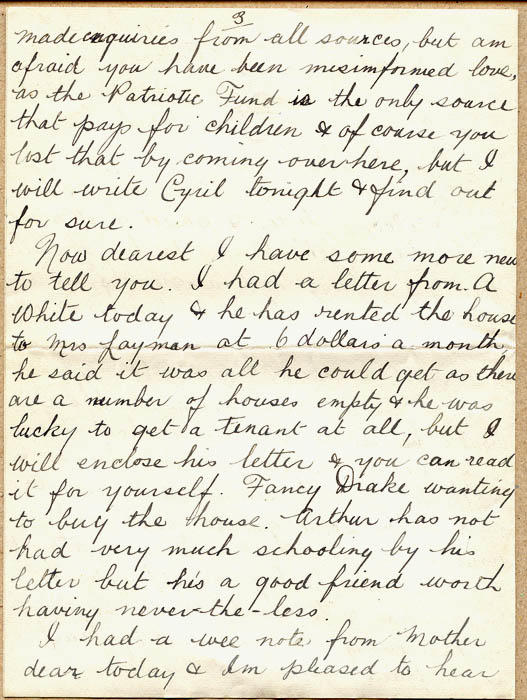 3
made enquiries from all sources, but am
afraid you have been misinformed love,
as the Patriotic Fund is the only source
that pays for children & of course you
lost that by coming over here, but I
will write Cyril tonight & find out
for sure.
Now dearest I have some more new
to tell you. I had a letter from A
White today & he has rented the house
to Mrs Layman at 6 dollars a month,
he said it was all he could get as there
are a number of houses empty & he was
lucky to get a tenant at all, but I
will enclose his letter & you can read
it for yourself. Fancy Drake wanting
to buy the house. Arthur has not
had very much schooling by his
letter but he's a good friend worth
having never-the-less.
I had a wee note from Mother
dear today & Im pleased to hear